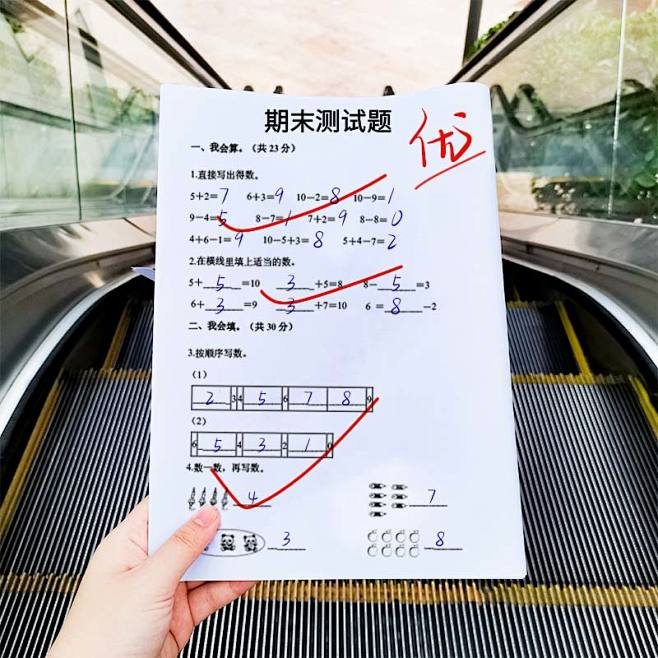 期末测试题
优
一、我会算。（共23分）
1.直接写出得数。
5+2=7 6+3=9 10-2=8 10-9=1
9-4=5 8-7=1 7+2=9 8-8=0
4+6-1=9 10-5+3=8 5+4-7=2
2.在横线里填上适当的数。
5+5=10 3+5=8 8-5=3
6+3=9 3+7=10 6=8-2
二、我会填。（共30分）
3.按顺序写数。
（1）
2 3 4 5 6 7 8 9
（2）
6 5 4 3 2 1 0
4.数一数，再写数。
4 7
3 8